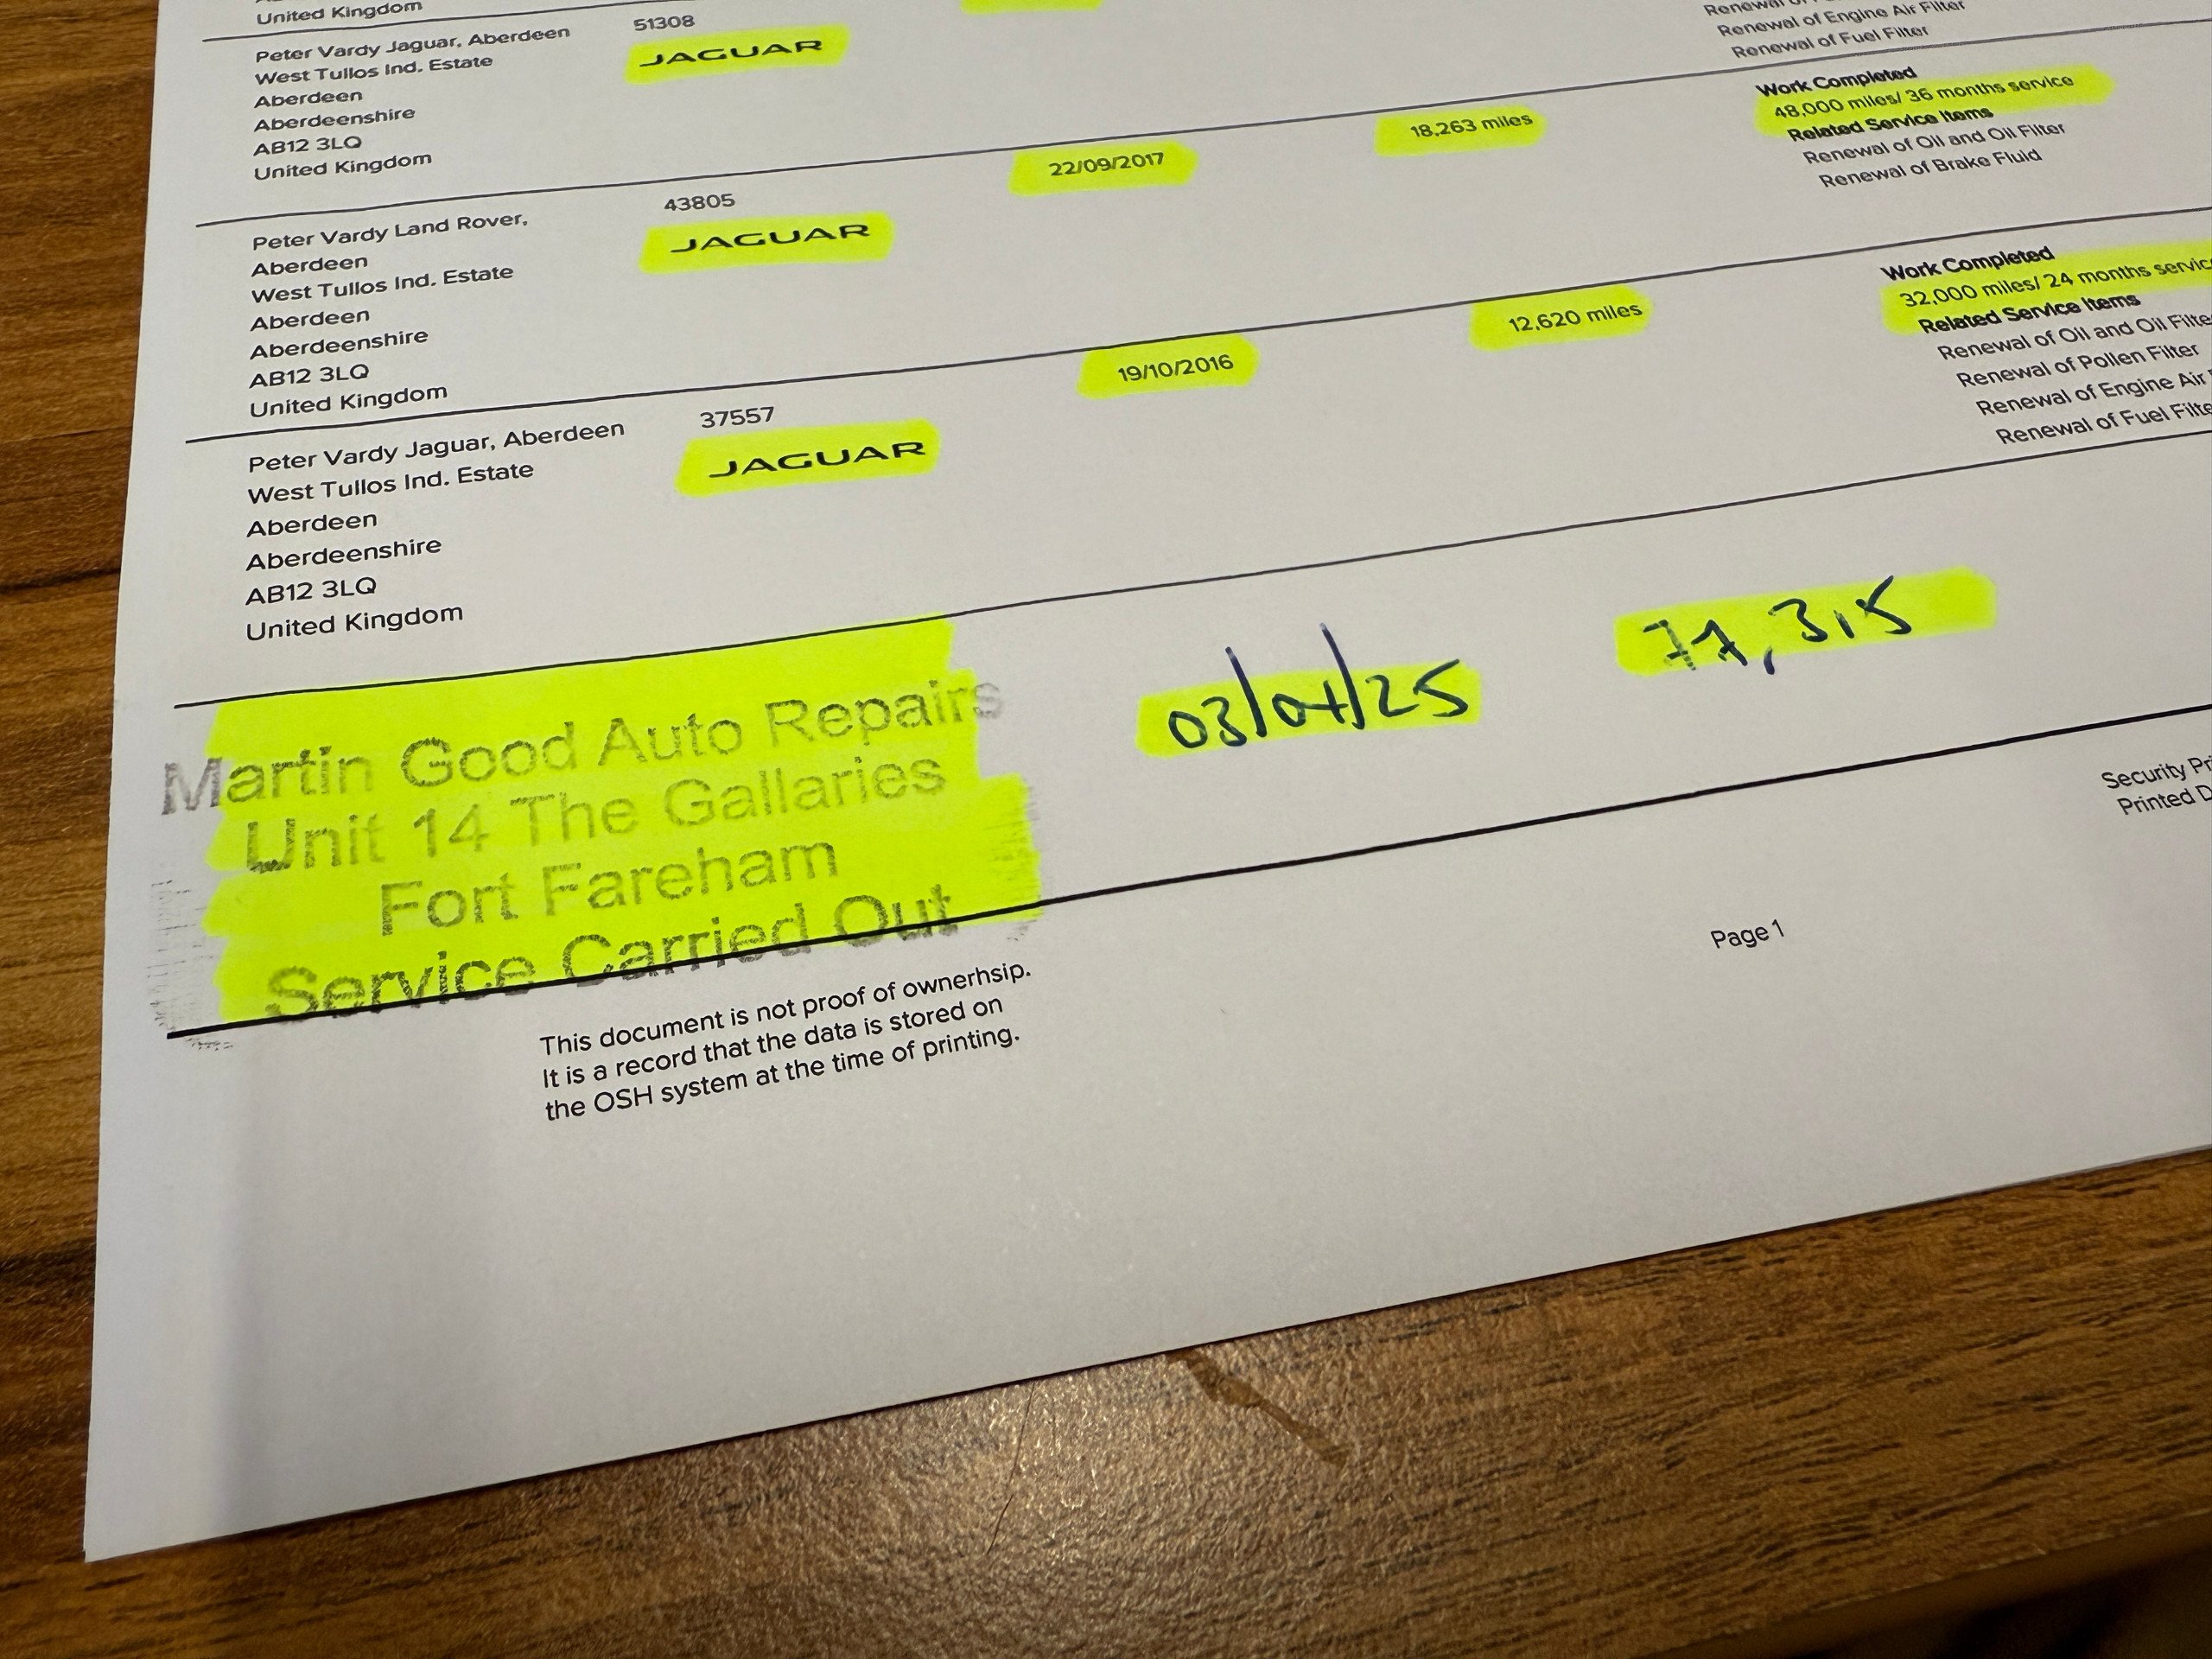 United Kingdom
Peter Vardy Jaguar, Aberdeen
West Tullos Ind. Estate
Aberdeen
Aberdeenshire
AB12 3LQ
United Kingdom
51308
JAGUAR
Renewal of Engine Air Filter
Renewal of Fuel Filter
Peter Vardy Land Rover,
Aberdeen
West Tullos Ind. Estate
Aberdeen
Aberdeenshire
AB12 3LQ
United Kingdom
43805
JAGUAR
22/09/2017
18,263 miles
Work Completed
48,000 miles/ 36 months service
Related Service Items
Renewal of Oil and Oil Filter
Renewal of Brake Fluid
Peter Vardy Jaguar, Aberdeen
West Tullos Ind. Estate
Aberdeen
Aberdeenshire
AB12 3LQ
United Kingdom
37557
JAGUAR
19/10/2016
12,620 miles
Work Completed
32,000 miles/ 24 months servic
Related Service Items
Renewal of Oil and Oil Filte
Renewal of Pollen Filter
Renewal of Engine Air
Renewal of Fuel Filte
Martin Good Auto Repairs
Unit 14 The Gallaries
Fort Fareham
Service Carried Out
03/04/25
77,315
Security Pri
Printed D
This document is not proof of ownerhsip.
It is a record that the data is stored on
the OSH system at the time of printing.
Page 1